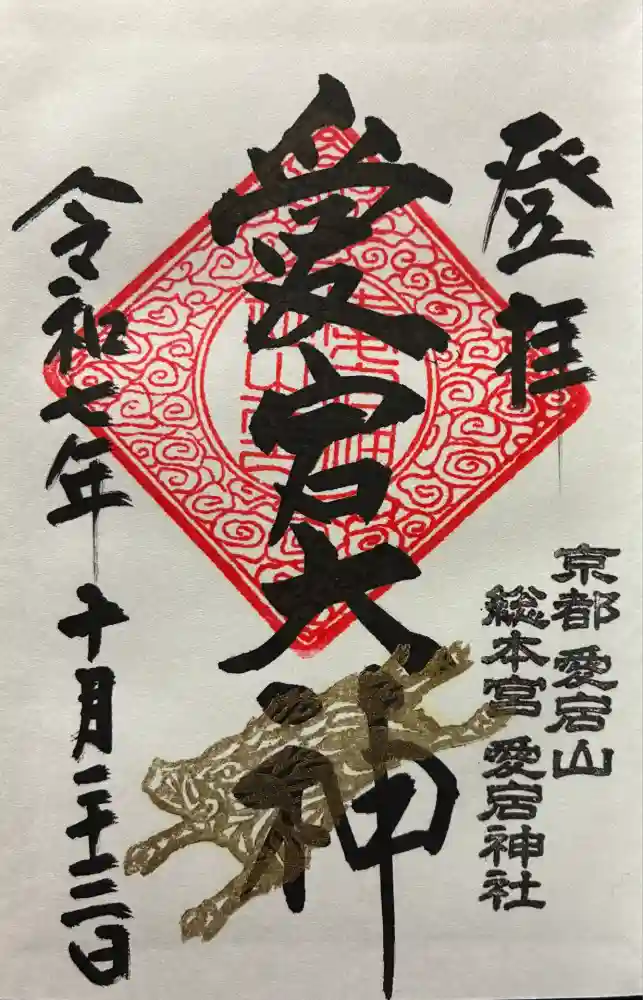 登拝
京都 愛宕山
総本宮 愛宕神社
愛宕大神
令和七年 十月二十二日